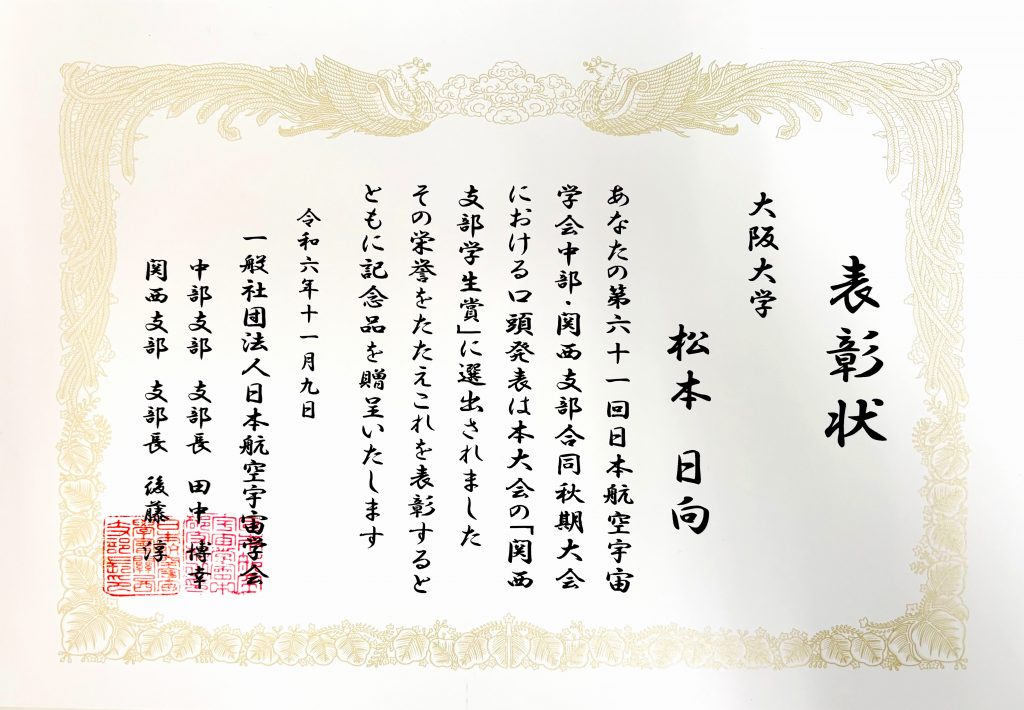 表彰状
大阪大学
松本 日向
あなたの第六十一回日本航空宇宙
学会中部・関西支部合同秋期大会
における口頭発表は本大会の「関西
支部学生賞」に選出されました
その栄誉をたたえこれを表彰すると
ともに記念品を贈呈いたします
令和六年十一月九日
一般社団法人日本航空宇宙学会
中部支部 支部長 田中 博幸
関西支部 支部長 後藤 淳